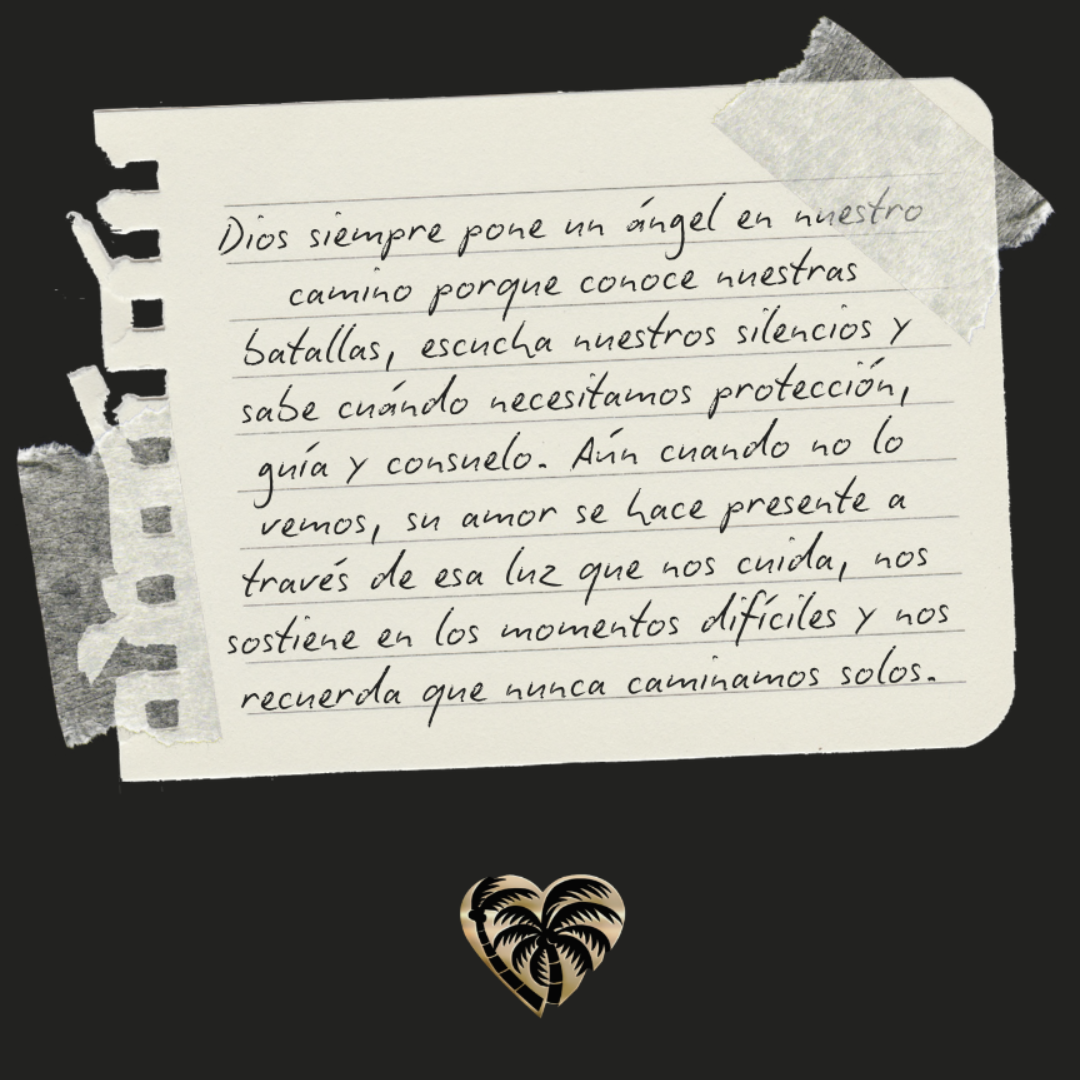 Dios siempre pone un ángel en nuestro
camino porque conoce nuestras
batallas, escucha nuestros silencios y
sabe cuándo necesitamos protección,
guía y consuelo. Aún cuando no lo
vemos, su amor se hace presente a
través de esa luz que nos cuida, nos
sostiene en los momentos difíciles y nos
recuerda que nunca caminamos solos.